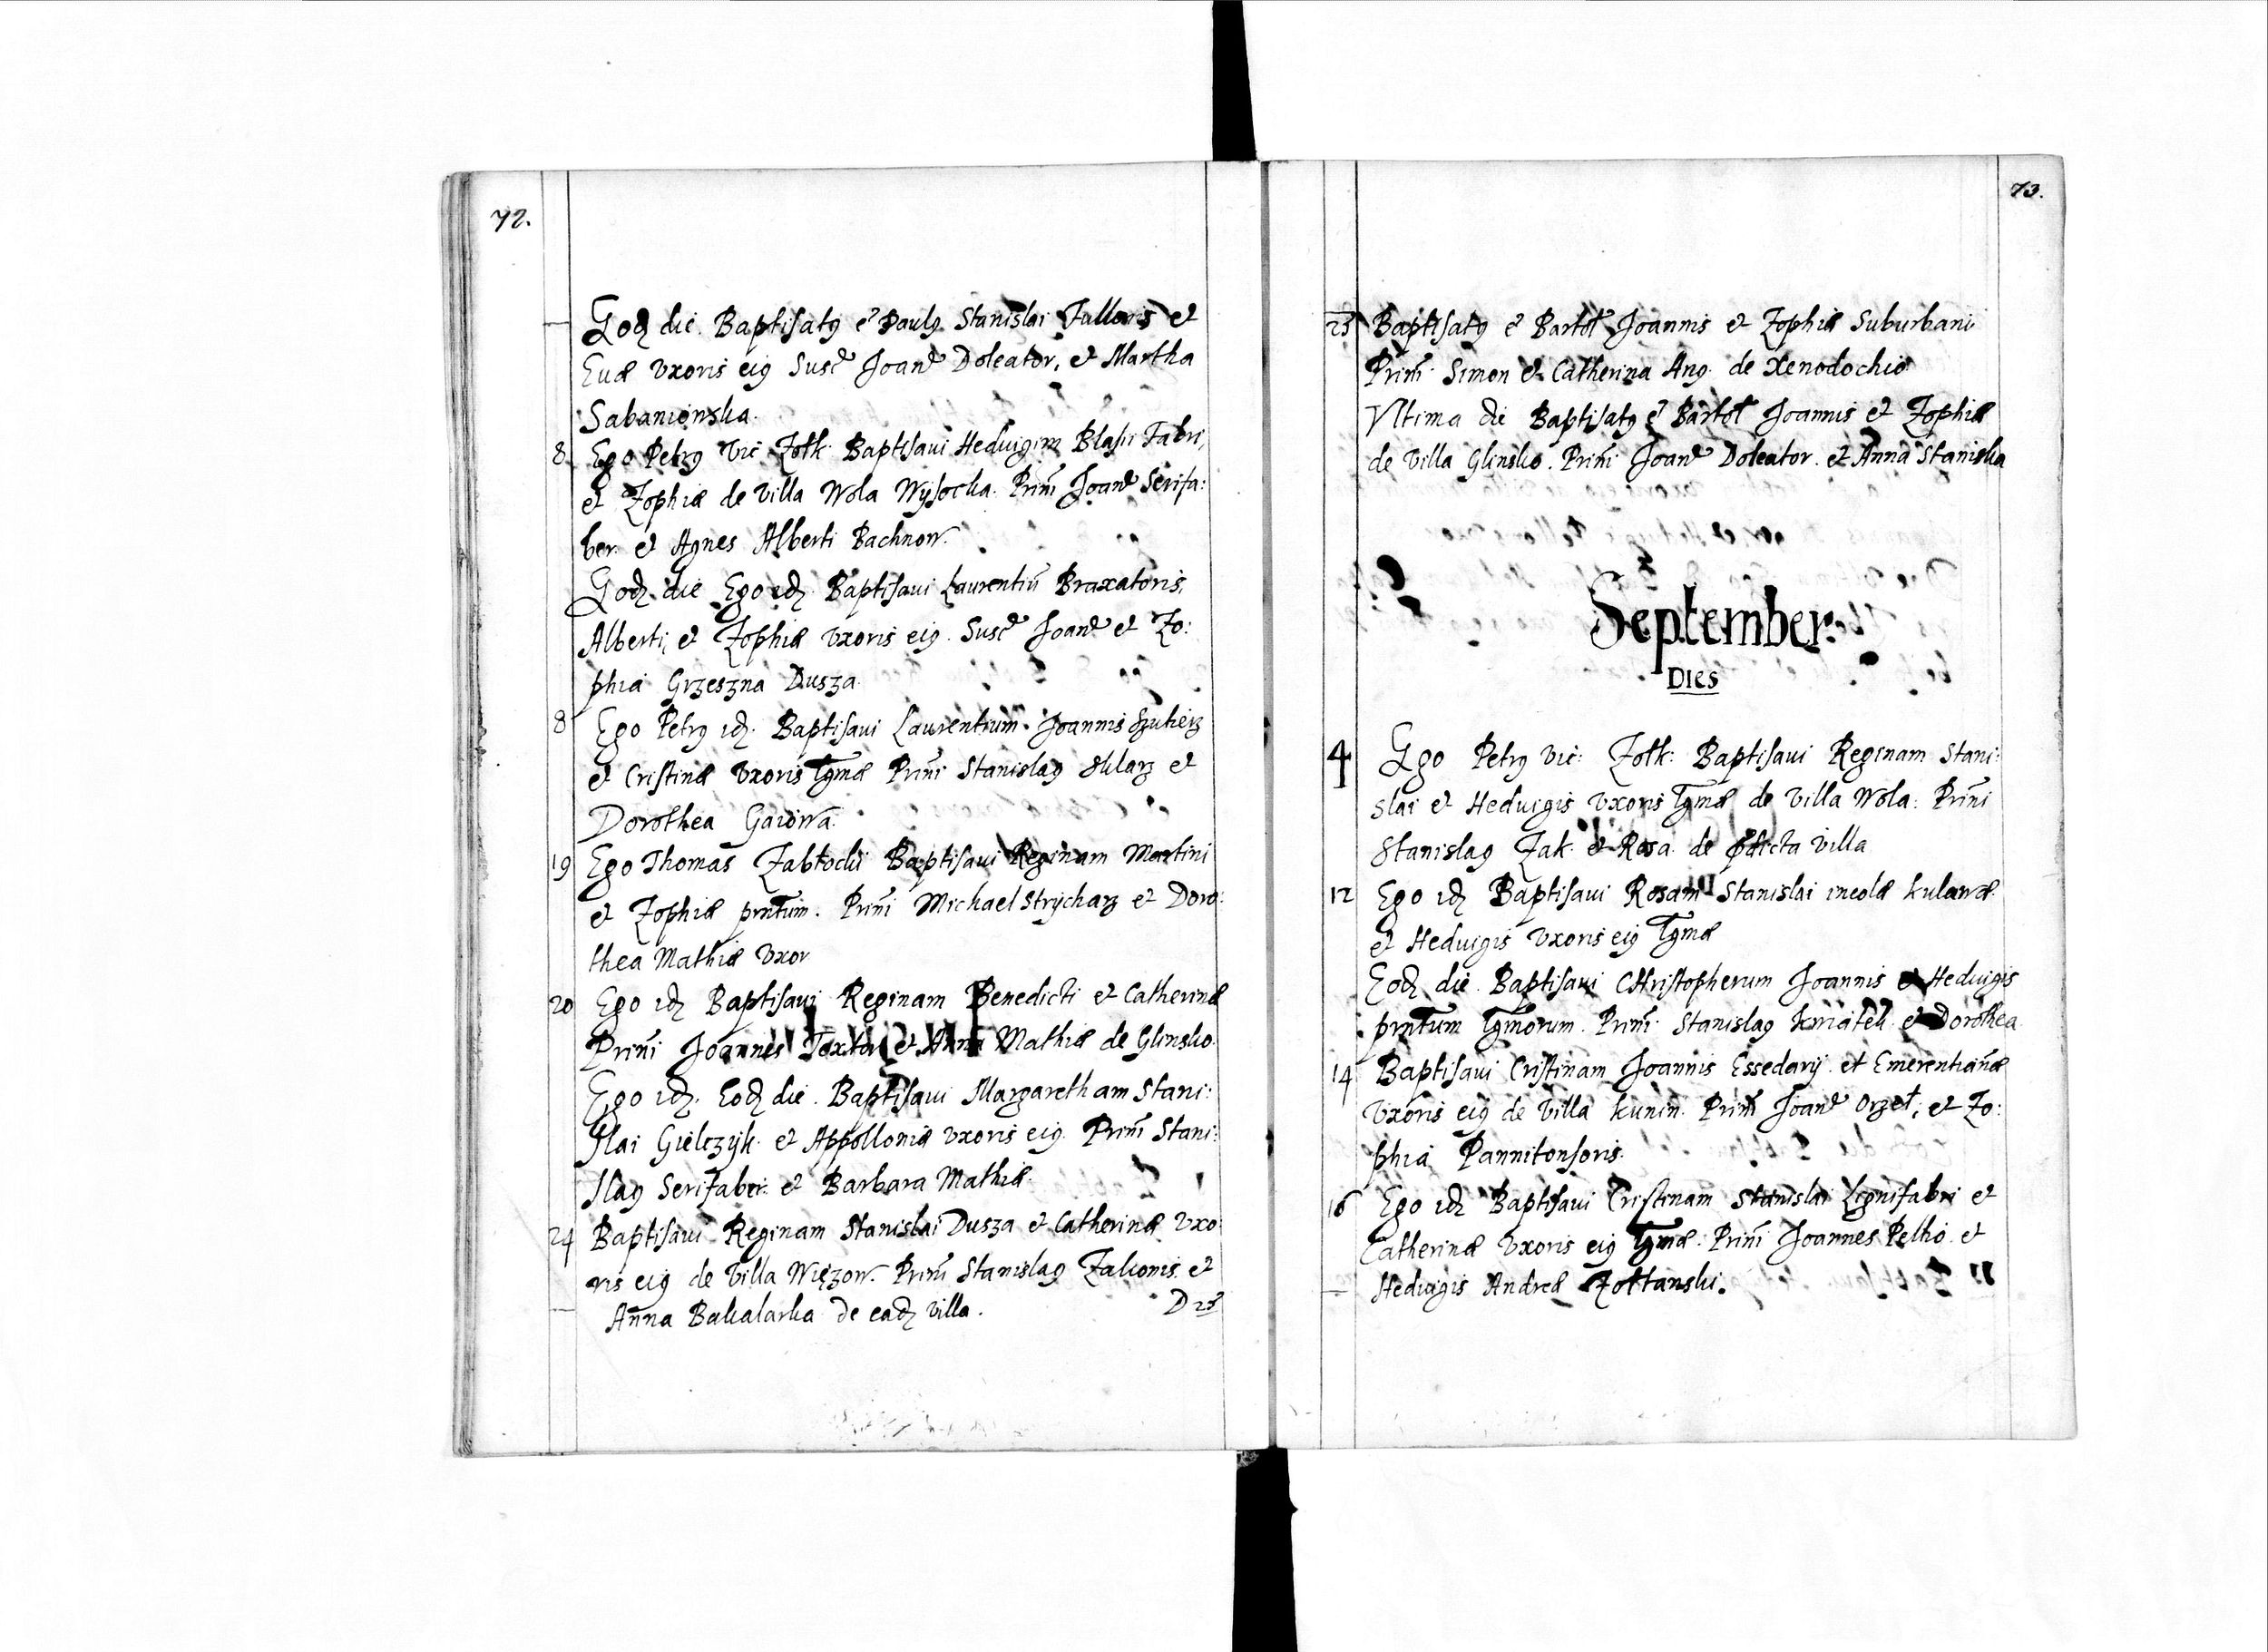 72.
Eodꝫ die. Baptisatꝰ ē Paulꝰ Stanislai Fullonis et
Euæ vxoris eiꝰ Susc. Joanē Doleator, et Martha
Sabanionska.
8 Ego Petrꝰ Vic Żołk: Baptisaui Heduigim Blasii Fabri,
et Zophiæ de Villa Wola Wysocka. Prim̄i Joanē Serifa:
ber. et Agnes Alberti Bachnow.
Eodꝫ die Ego idꝫ Baptisaui Laurentiū Braxatoris,
Alberti, et Zophiæ vxoris eiꝰ. Susc. Joanē et Zo:
phia Grzeszna Dusza.
8 Ego Petrꝰ idꝫ. Baptisaui Laurentium. Joannis
et Cristinæ Vxoris lgmæ Prim̄i Stanislaꝰ Sklarz et
Dorothea Gaiowa.
19 Ego Thomas Zabłocki Baptisaui Reginam Martini
et Zophiæ prntum. Prim̄i Michael Strycharz et Doro:
thea Mathiæ Vxor
20 Ego idꝫ Baptisaui Reginam Benedicti et Catherinæ
Prim̄i Joannes Textor et Anna Mathiæ de Glinsko.
Ego idꝫ. Eodꝫ die. Baptisaui Margaretham Stani:
slai Gielczyk. et Appolloniæ vxoris eiꝰ. Prim̄i Stani:
slaꝰ Serifaber. et Barbara Mathiæ.
24 Baptisaui Reginam Stanislai Dusza et Catherinæ Vxo:
ris eiꝰ de Villa Więzow. Prim̄i Stanislaꝰ Zakonis. et
Anna Bakalarka de eadꝫ villa.
D 25
73.
25 Baptisatꝰ ē Bartoł Joannis et Zophiæ Suburbani
Prim̄i. Simon et Catherina Anꝰ. de Xenodochio
Vltima die Baptisatꝰ ē Bartoł Joannis et Zophiæ
de Villa Glinsko. Prim̄i Joanē Doleator. et Anna Staniska
September.
Dies
4 Ego Petrꝰ Vic: Żołk: Baptisaui Reginam Stani:
slai et Heduigis Vxoris lgmæ de Villa Wola. Prim̄i
Stanislaꝰ Żak. et Rosa. de pdicta Villa
12 Ego idꝫ Baptisaui Rosam Stanislai incolæ kulawæ.
et Heduigis Vxoris eiꝰ lgmæ
Eodꝫ die. Baptisaui CHristopherum Joannis et Heduigis
prntum lgmorum. Prim̄i. Stanislaꝰ et Dorothea.
14 Baptisaui Cristinam Joannis Essedarij. et Emerentianæ
Vxoris eiꝰ de Villa kunin. Prim̄i Joanē Orzeł, et Zo:
phia Pannitonsoris.
16 Ego idꝫ Baptisaui Cristinam Stanislai Lignifabri et
Catherinæ Vxoris eiꝰ lgmæ. Prim̄i Joannes Pelho. et
Heduigis Andreæ Żołtanski.